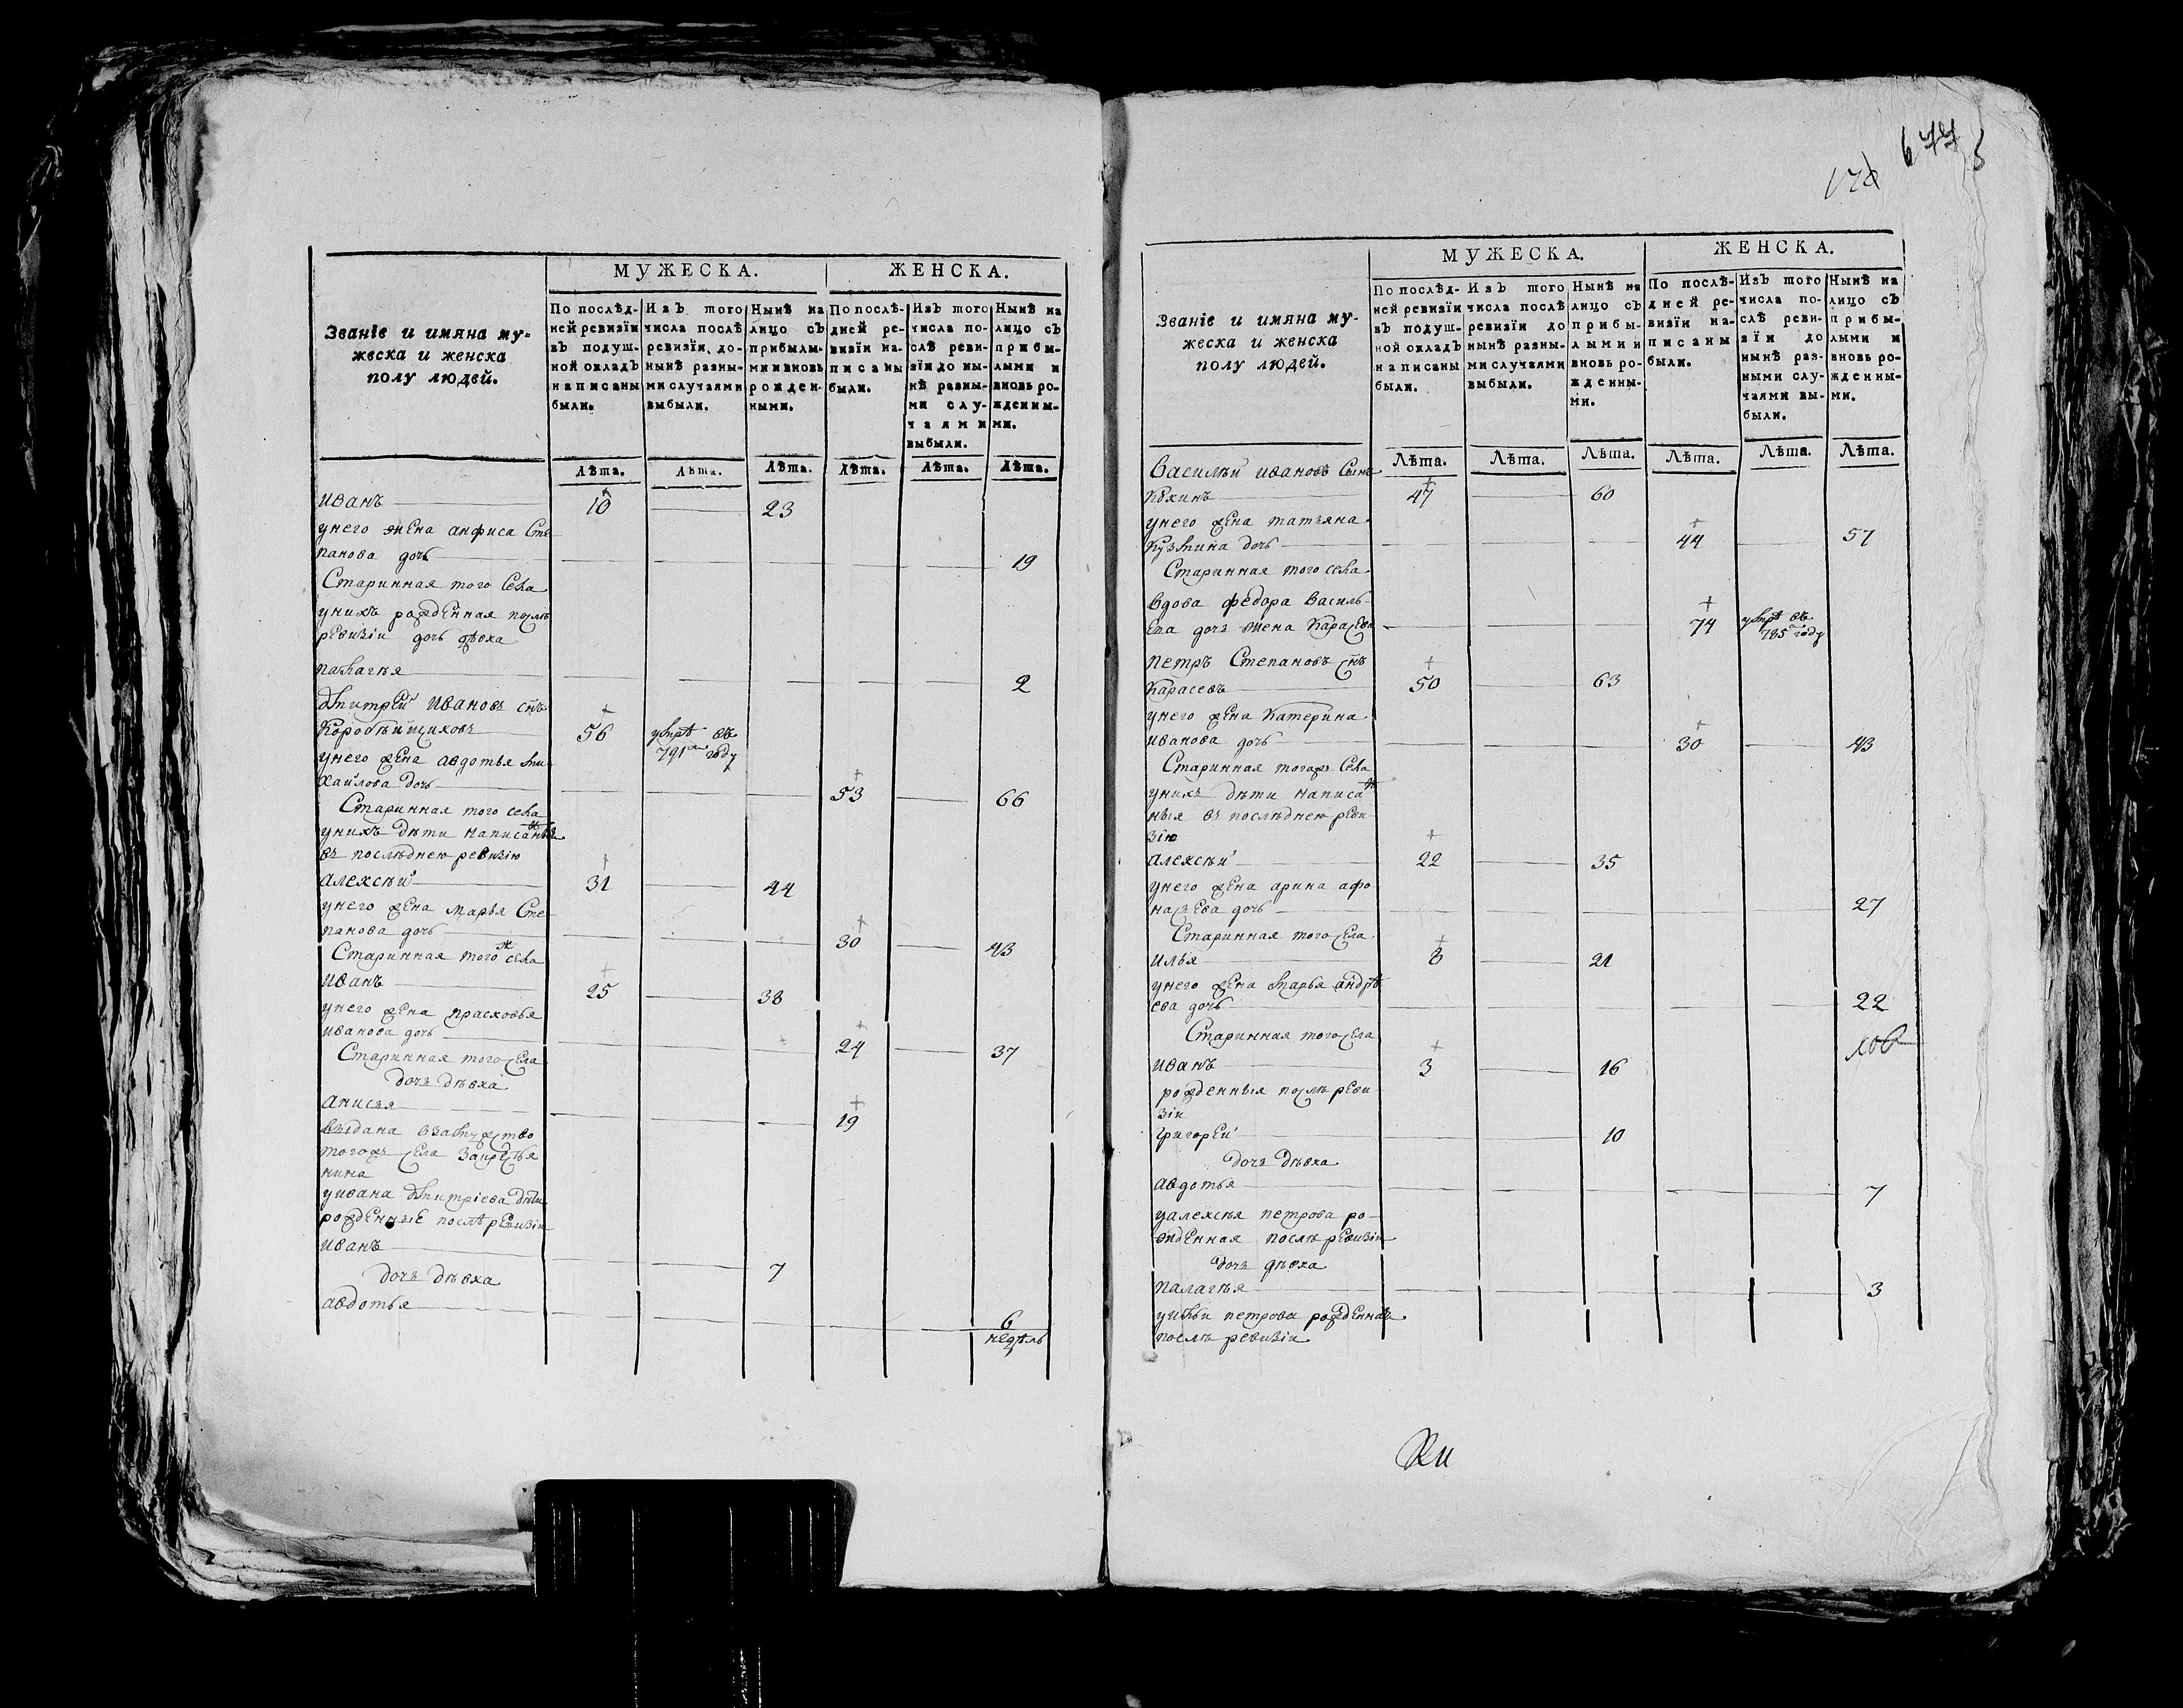 Званіе и имяна му-
жеска и женска
полу людей.
МУЖЕСКА.
ЖЕНСКА.
По послѣд-
ней ревизїи
въ подуш-
ной окладъ
написаны
были.
Изъ того
числа послѣ
ревизїи до-
нынѣ разны-
ми случаями
выбыли.
Нынѣ на
лицо съ
прибылы-
ми и вновь
рожден-
ными.
По послѣ-
дней ре-
визїи на-
писаны
были.
Изъ того
числа по-
слѣ реви-
зїи до ны-
нѣ разны-
ми слу-
чаями
выбыли.
Нынѣ на
лицо съ
прибы-
лыми и
вновь ро-
жденны-
ми.
Лѣта. Лѣта. Лѣта. Лѣта. Лѣта. Лѣта.
иванъ 10 23
унего жена анфиса Сте
панова дочь 19
Старинная того села
унихъ рожденная послѣ
ревизіи дочь девка
палагѣя 2
дмитрей ивановъ снъ
Коробейщиковъ 56 умре въ
791м году
унего жена авдотья ми
хайлова дочь 53 66
Старинная того села
унихъ дѣти написаныя
въ послѣднею ревизію
алексѣй 31 44
унего жена марья Сте
панова дочь 30 43
Старинная того ж села
иванъ 25 38
унего жена прасковья
иванова дочь 24 37
Старинная того села
дочь дѣвка
анисья 19
выдана взамужство
тогожъ села закрестья
нина
уивана дмитріева дѣти
рожденные послѣ ревизіи
иванъ 7
дочь дѣвка
авдотья 6
недѣль
677
Званіе и имяна му-
жеска и женска
полу людей.
МУЖЕСКА.
ЖЕНСКА.
По послѣд-
ней ревизїи
въ подуш-
ной окладъ
написаны
были.
Изъ того
числа послѣ
ревизїи до
нынѣ разны-
ми случаями
выбыли.
Нынѣ на
лицо съ
прибы-
лыми и
вновь ро-
жденны-
ми.
По послѣ-
дней ре-
визїи на-
писаны
были.
Изъ того
числа по-
слѣ реви-
зїи до
нынѣ раз-
ными слу-
чаями вы-
были.
Нынѣ на
лицо съ
прибы-
лыми и
вновь ро-
жденны-
ми.
Лѣта. Лѣта. Лѣта. Лѣта. Лѣта. Лѣта.
Василѣй ивановъ Сынъ
47 60
унего жена татьяна
Кузмина дочь 44 57
Старинная того села
вдова федора василь
ева дочь жена Карасева 74 умре въ
785м году
петръ Степановъ снъ
Карасевъ 50 63
унего жена Катерина
иванова дочь 30 43
Старинная тогожъ села
унихъ дѣти написа
ныя въ послѣднею реви
зію
алексѣй 22 35
унего жена арина афо
насьева дочь 27
Старинная того села
илья 8 21
унего жена марья андрѣ
ева дочь 22
Старинная того села
иванъ 3 16
рожденныя послѣ реви
зіи
григорей 10
дочь дѣвка
авдотья 7
уалексѣя петрова ро
жденная послѣ ревизіи
дочь дѣвка
палагѣя 3
уильи петрова рожденная
послѣ ревизіи